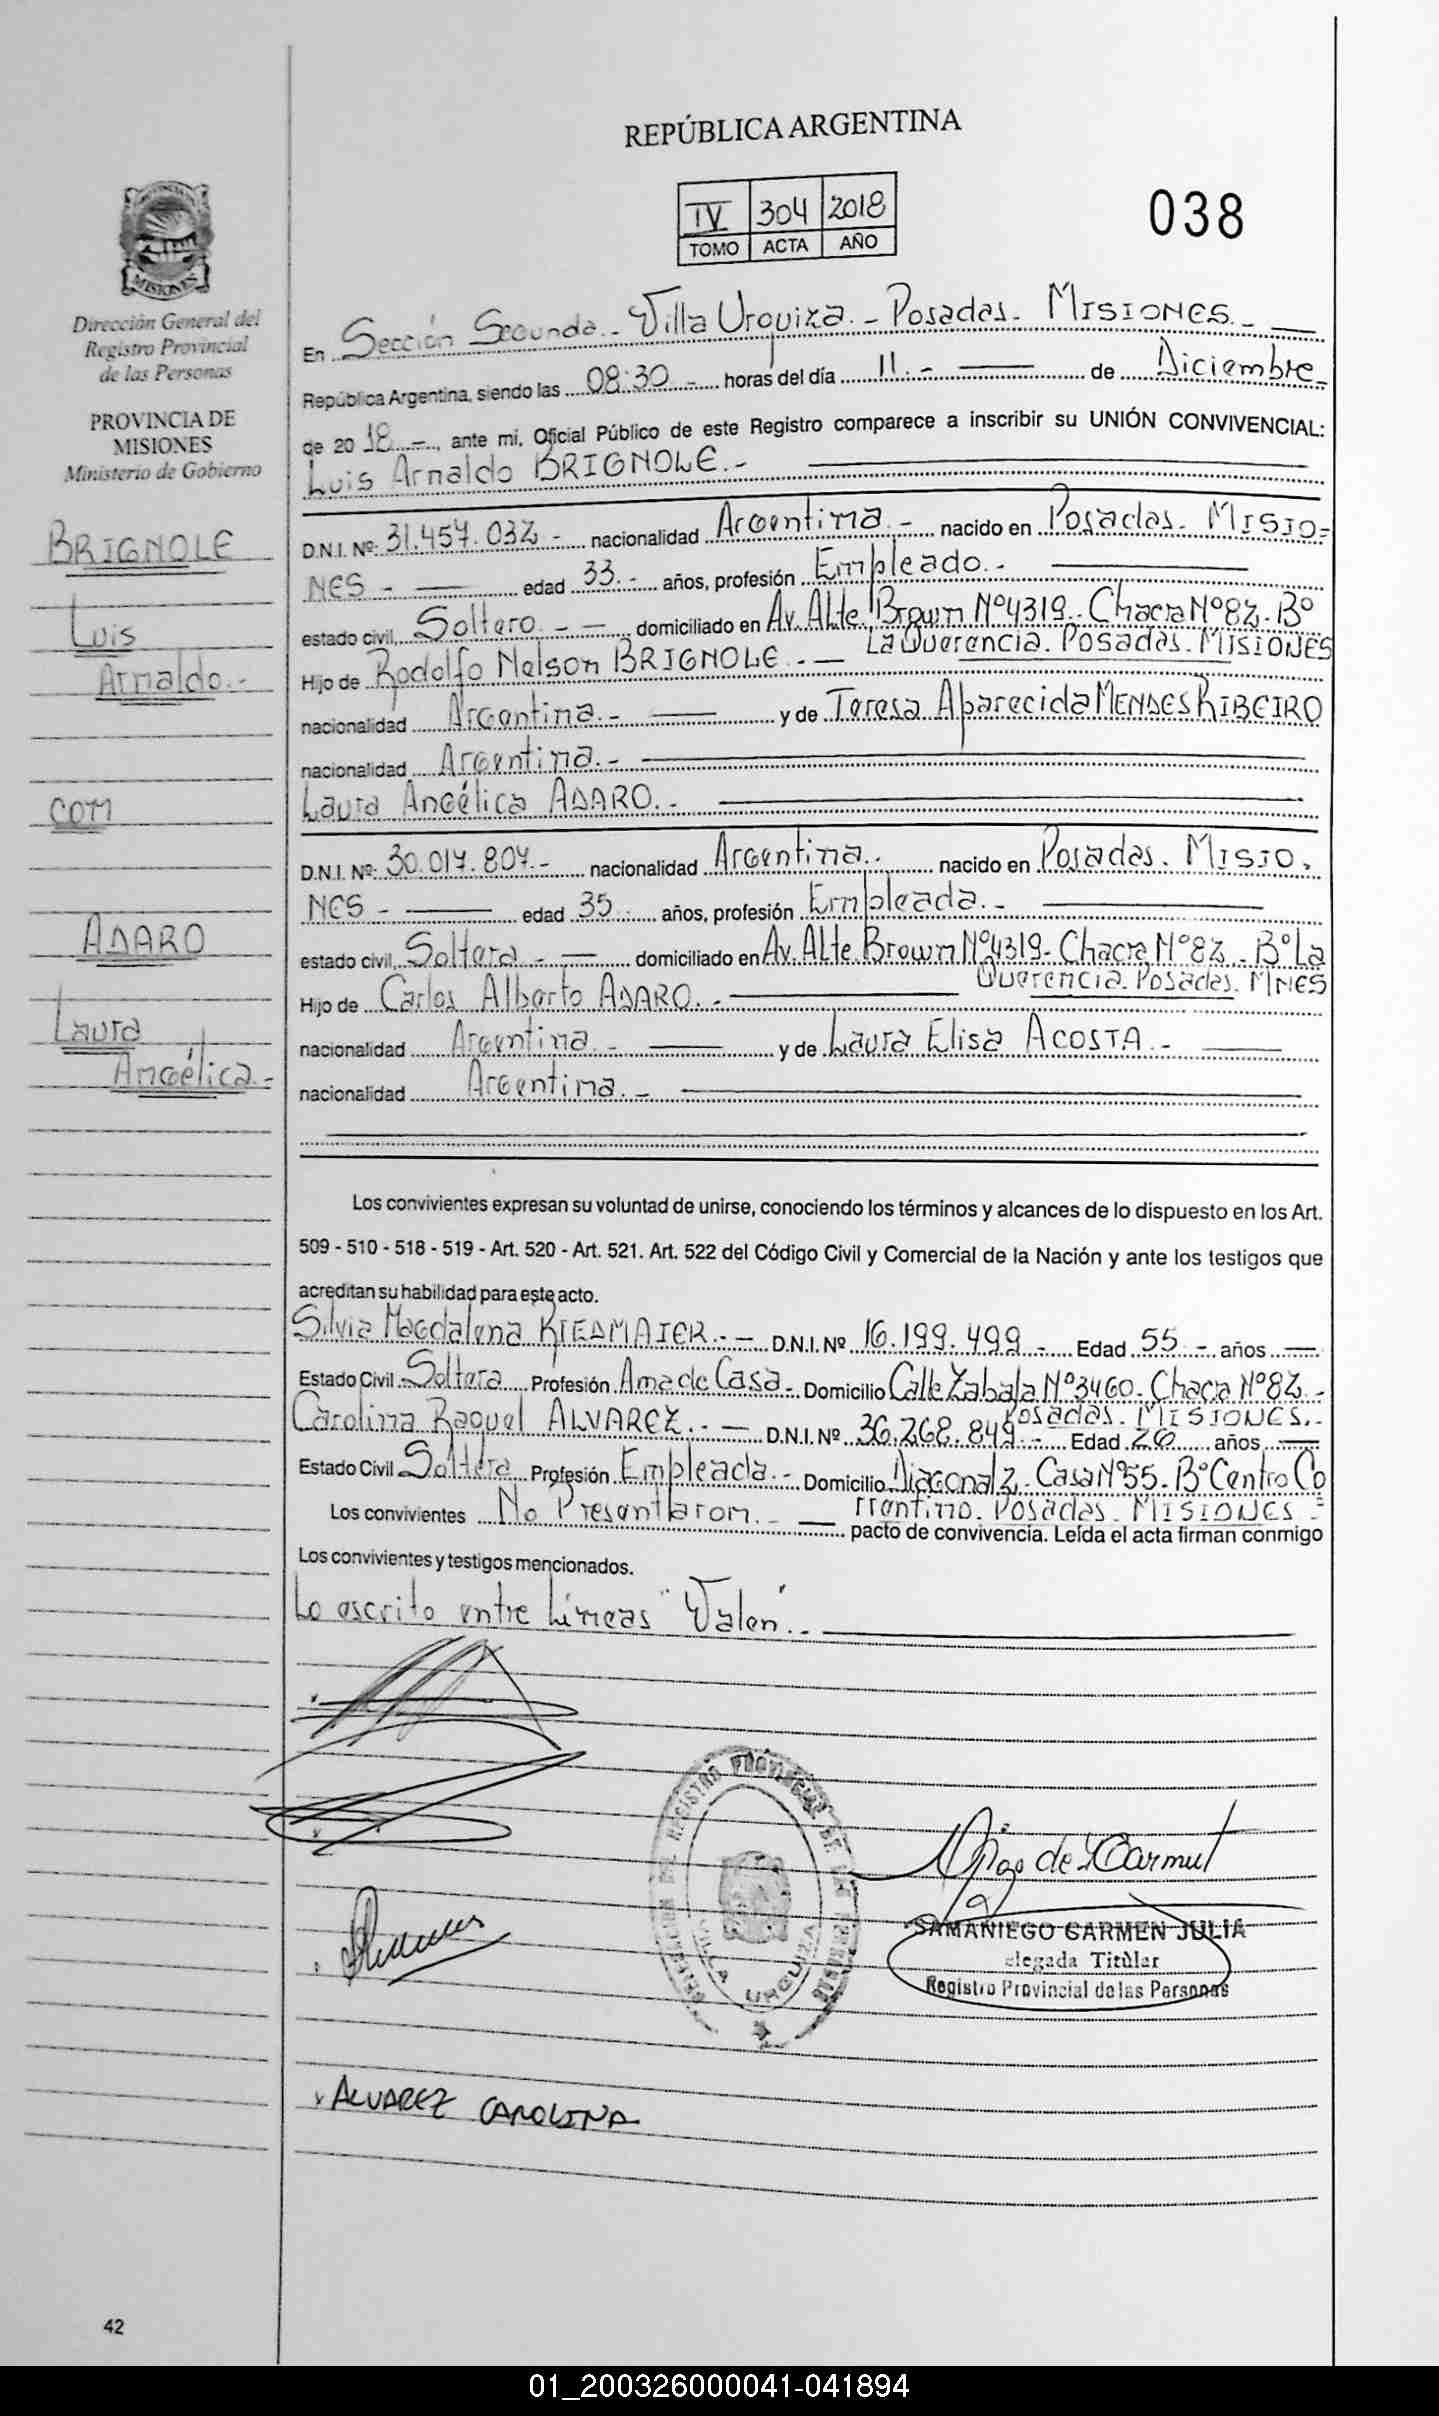 REPÚBLICA ARGENTINA
IV 304 2018
TOMO ACTA AÑO
038
MISIONES
Dirección General del
Registro Provincial
de las Personas
PROVINCIA DE
MISIONES
Ministerio de Gobierno
BRIGNOLE
Luis
Arnaldo.-
con
ADARO
Laura
Angélica.-
En Sección Segunda.- Villa Urquiza.- Posadas- MISIONES.-
República Argentina, siendo las 08:30.- horas del día 11.- de Diciembre-
de 20 18.-, ante mi, Oficial Público de este Registro comparece a inscribir su UNIÓN CONVIVENCIAL:
Luis Arnaldo BRIGNOLE.-
D.N.I. Nº: 31.457.032- nacionalidad Argentina.- nacido en Posadas- MISIO-
NES- edad 33.- años, profesión Empleado.-
estado civil, Soltero.- - domiciliado en Av. Alte. Brown Nº4319- Chacra Nº82- Bº
La Querencia. Posadas. MISIONES
Hijo de Rodolfo Nelson BRIGNOLE.-
nacionalidad Argentina.- y de Teresa Aparecida MENDES RIBEIRO
nacionalidad Argentina.-
Laura Angélica ADARO.-
D.N.I. Nº: 30.017.807.- nacionalidad Argentina.- nacido en Posadas. MISIO-
NES- edad 35.- años, profesión Empleada.-
estado civil, Soltera- - domiciliado en Av. Alte Brown Nº4319- Chacra Nº82.- Bº La
Querencia. Posadas. MNES
Hijo de Carlos Alberto ADARO.-
nacionalidad Argentina.- y de Laura Elisa ACOSTA.-
nacionalidad Argentina.-
Los convivientes expresan su voluntad de unirse, conociendo los términos y alcances de lo dispuesto en los Art.
509 - 510 - 518 - 519 - Art. 520 - Art. 521. Art. 522 del Código Civil y Comercial de la Nación y ante los testigos que
acreditan su habilidad para este acto.
Silvia Magdalena RIEDMAIER.- - D.N.I. Nº 16.199.499- Edad 55- años
Estado Civil Soltera Profesión Ama de Casa- Domicilio Calle Zabala Nº3460- Chacra Nº82.-
Posadas. MISIONES.-
Carolina Raquel ALVAREZ.- - D.N.I. Nº 36.268.849- Edad 26 años
Estado Civil Soltera Profesión Empleada.- Domicilio Diagonal 2- Casa Nº55- Bº Centro Co
rrentino. Posadas. MISIONES-
Los convivientes No Presentaron.- pacto de convivencia. Leída el acta firman conmigo
Los convivientes y testigos mencionados.
Lo escrito entre Líneas "Valen".-
DELEGACION DEL REGISTRO PROVINCIAL DE LAS PERSONAS
VILLA URQUIZA
SAMANIEGO CARMEN JULIA
elegada Titular
Registro Provincial de las Personas
ALVAREZ CAROLINA
42
01_200326000041-041894